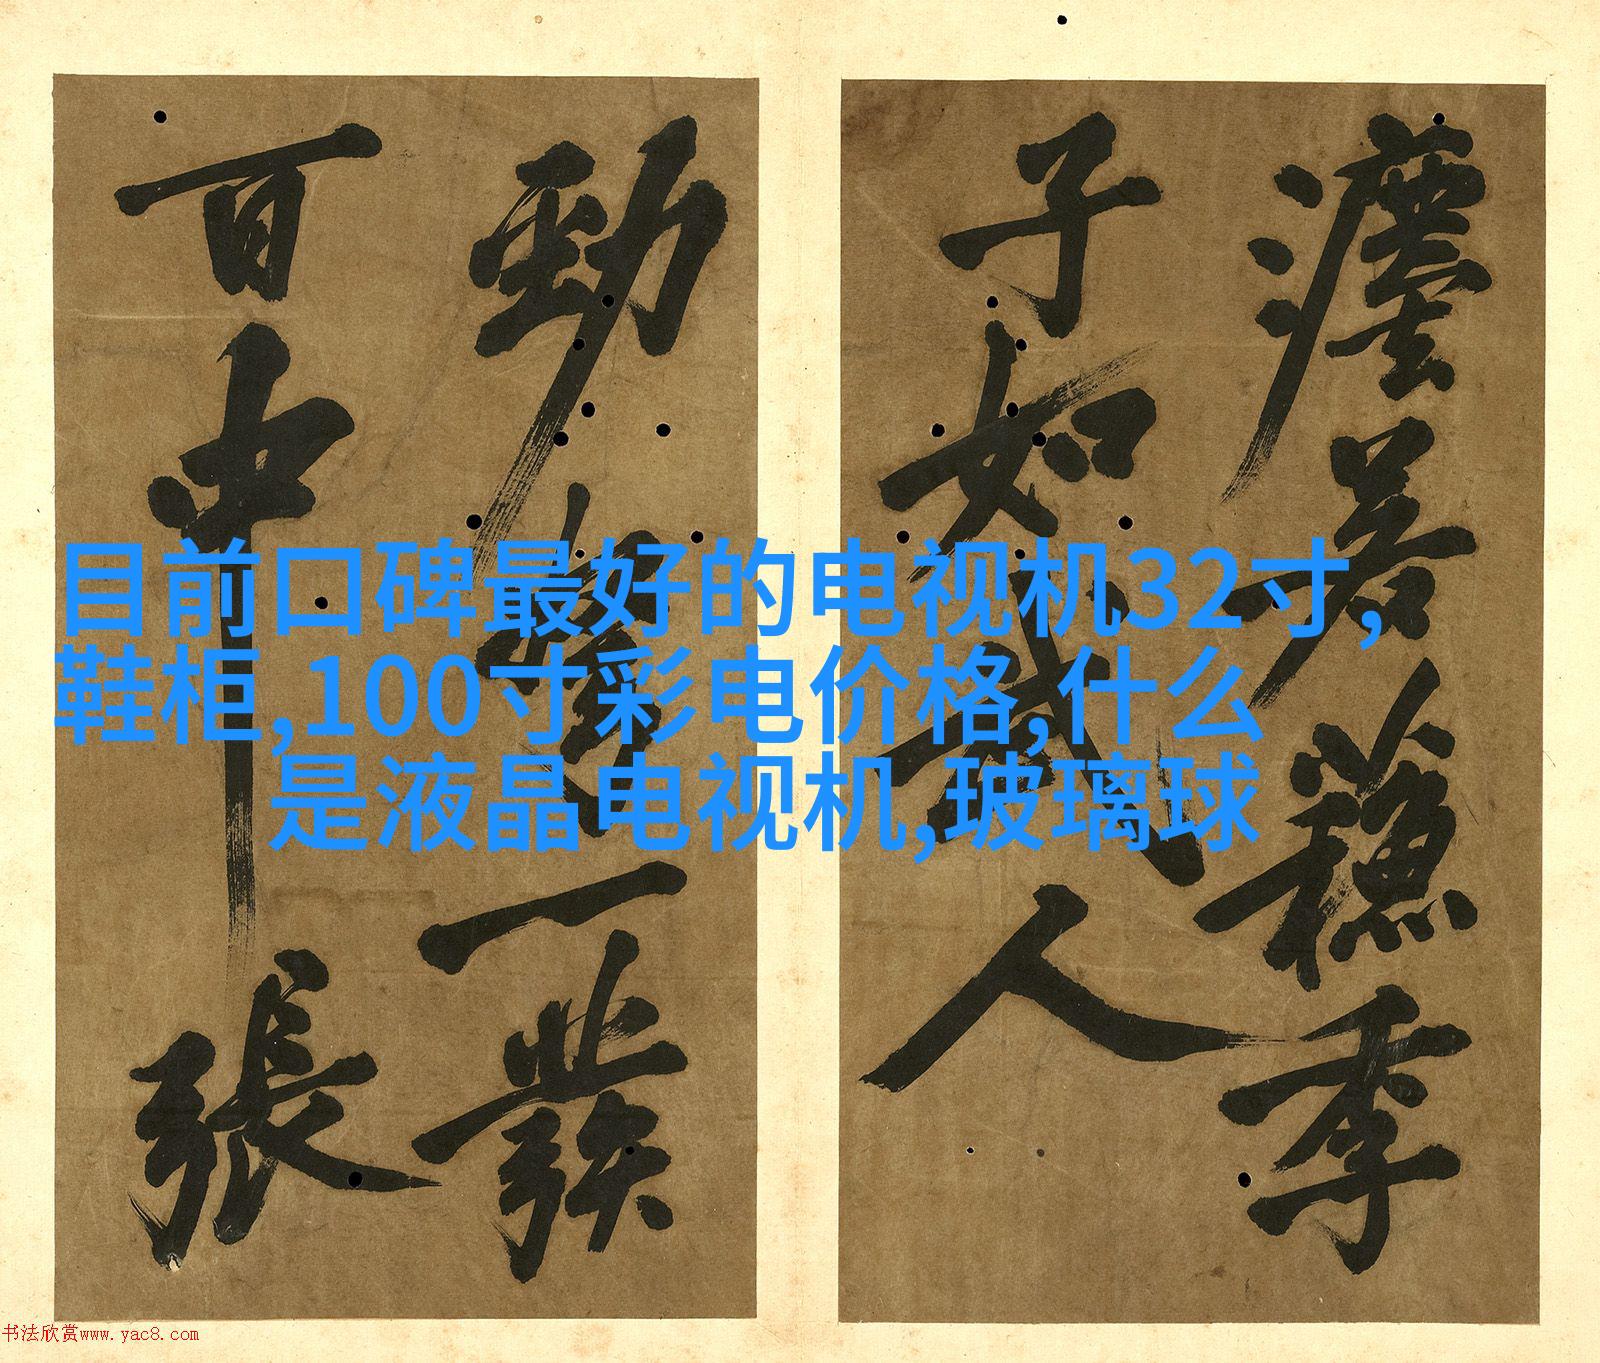 瀍著蘓季
子如武人
勁弩一發
百中張
目前口碑最好的电视机32寸,
鞋柜,100寸彩电价格,什么
是液晶电视机,玻璃球
书法欣赏www.yac8.com